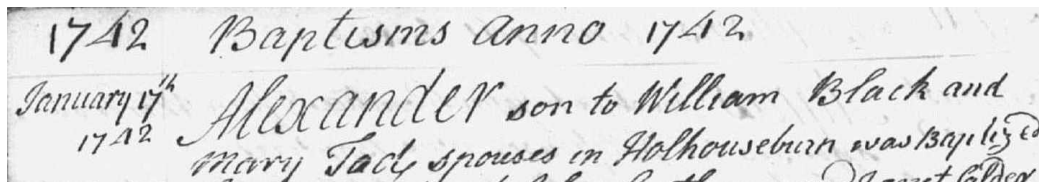 1742 Baptisms Anno 1742
January 17th Alexander son to William Black and
1742 Mary Tad spouses in Holhouseburn was Baptized
Janet Calder